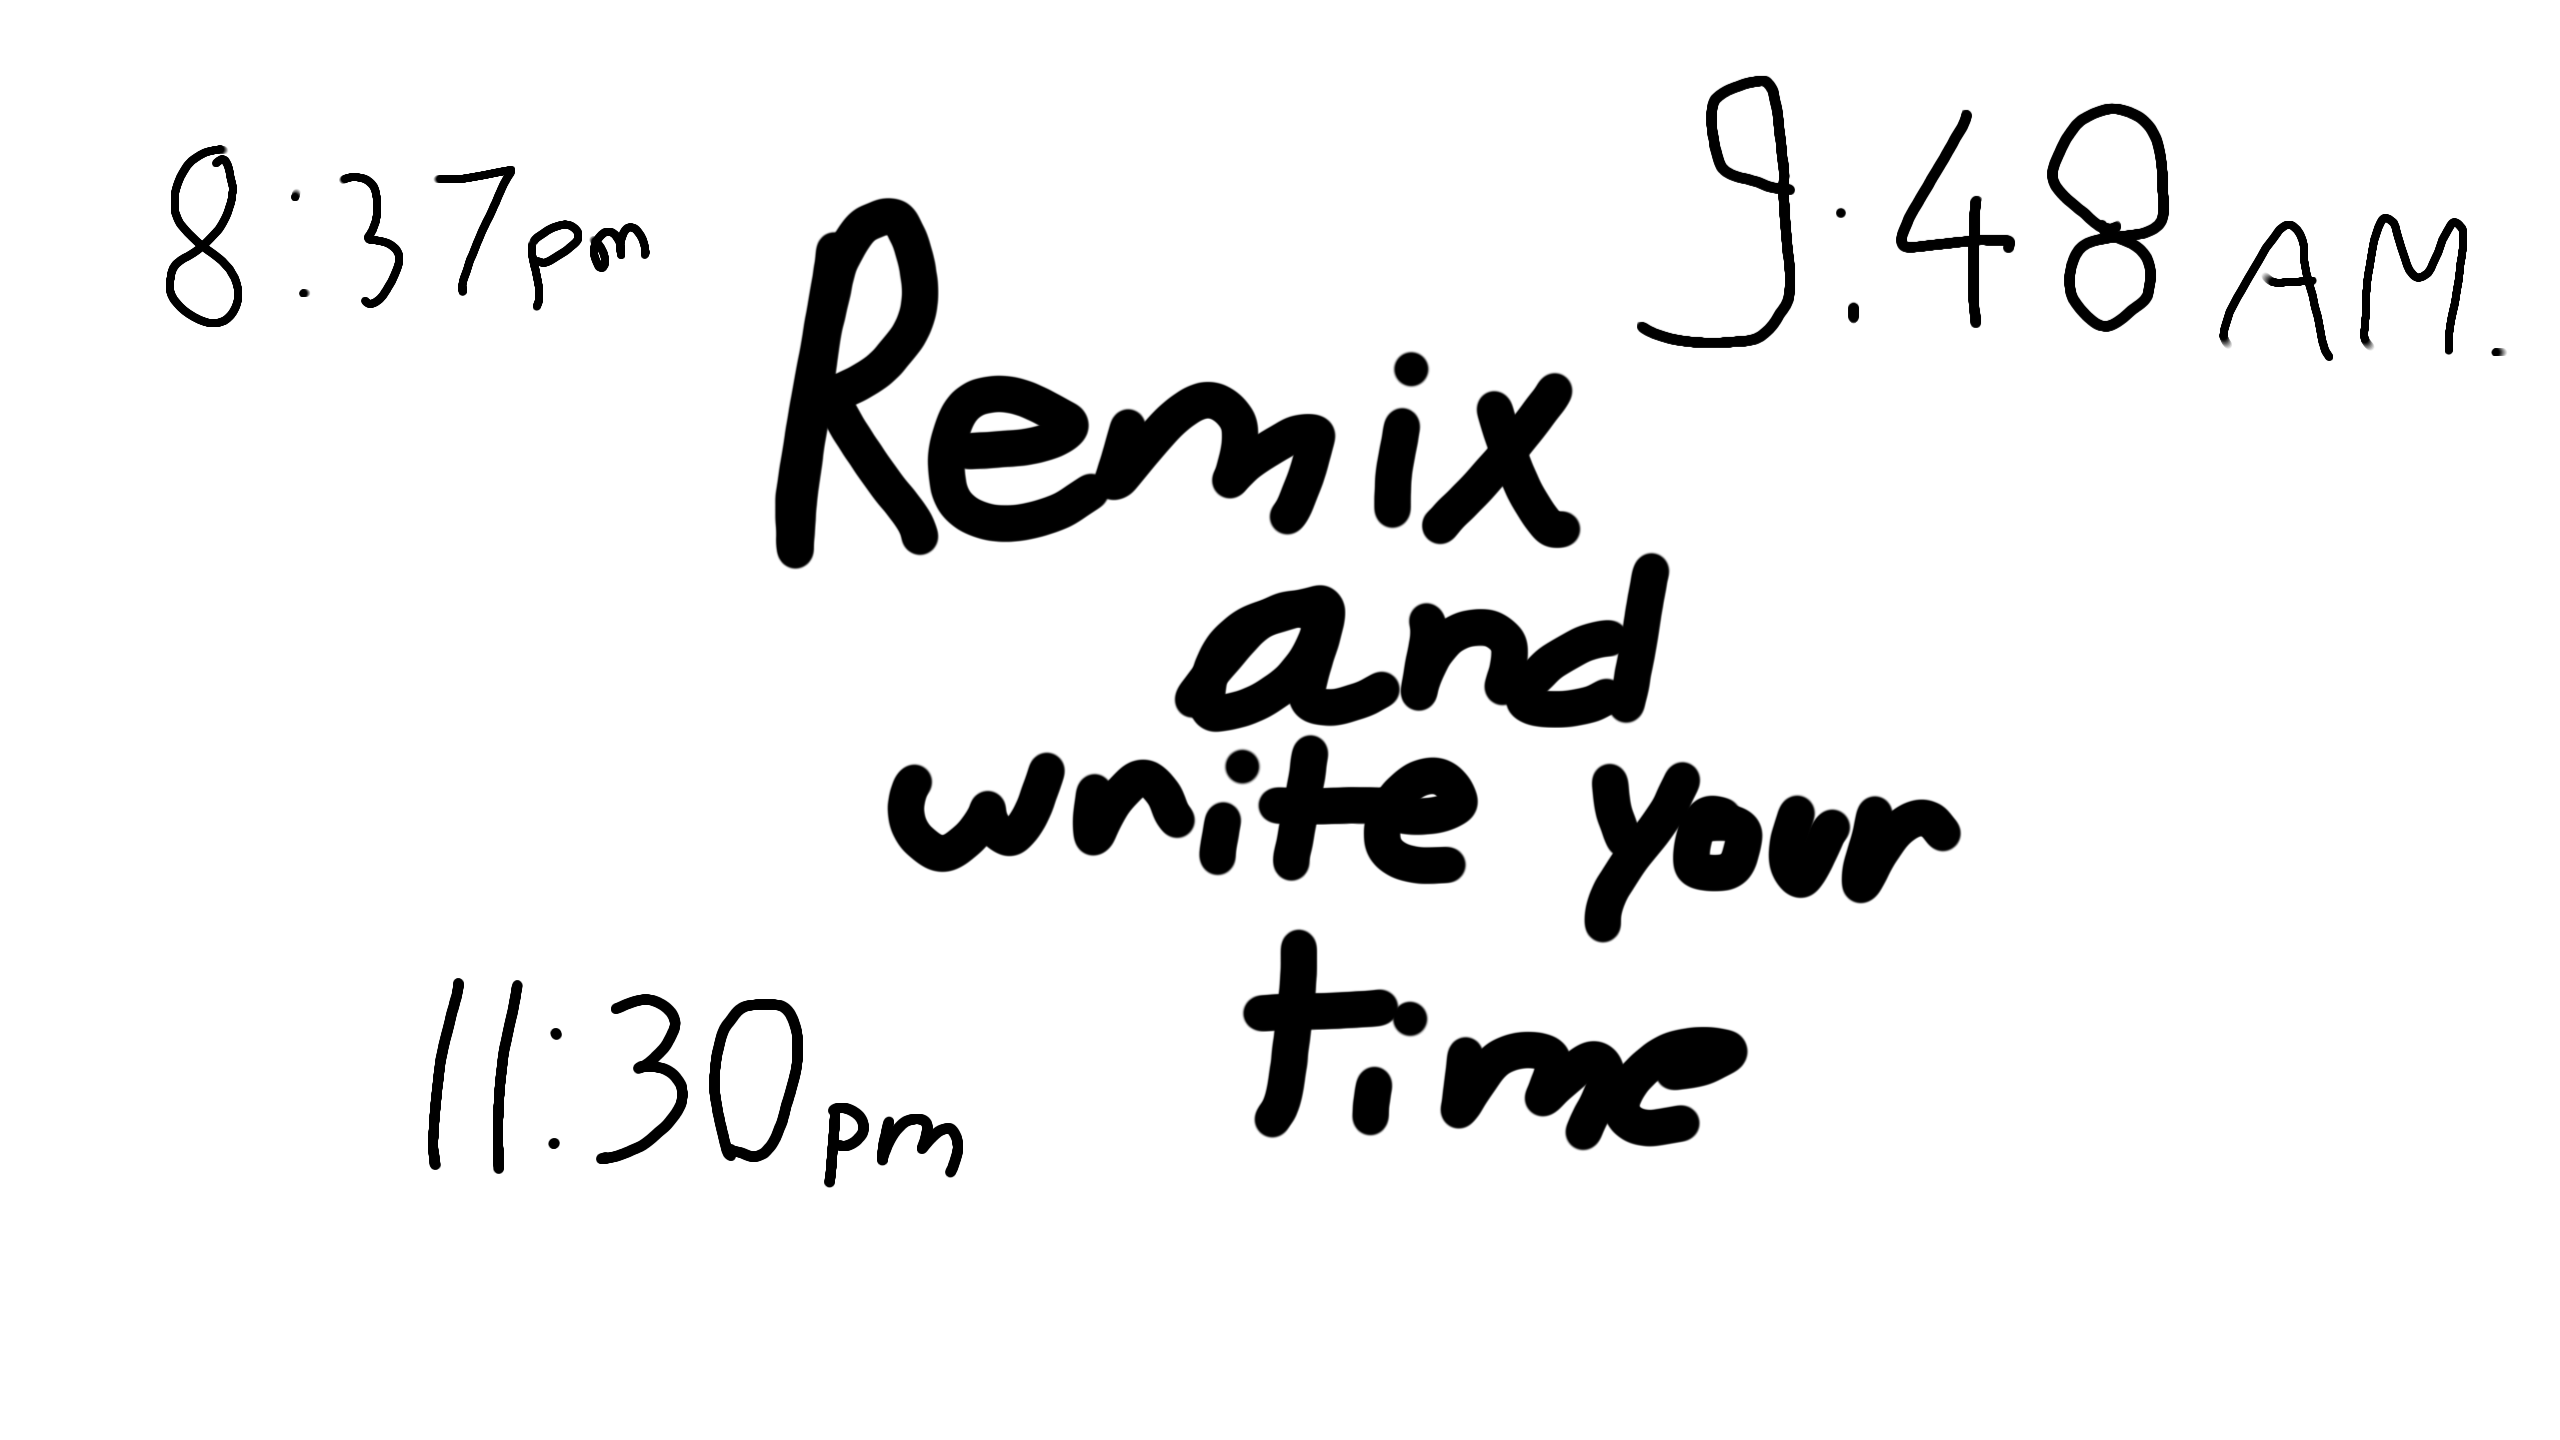 8:37pm
9:48 AM.
Remix
and
write your
time
11:30pm